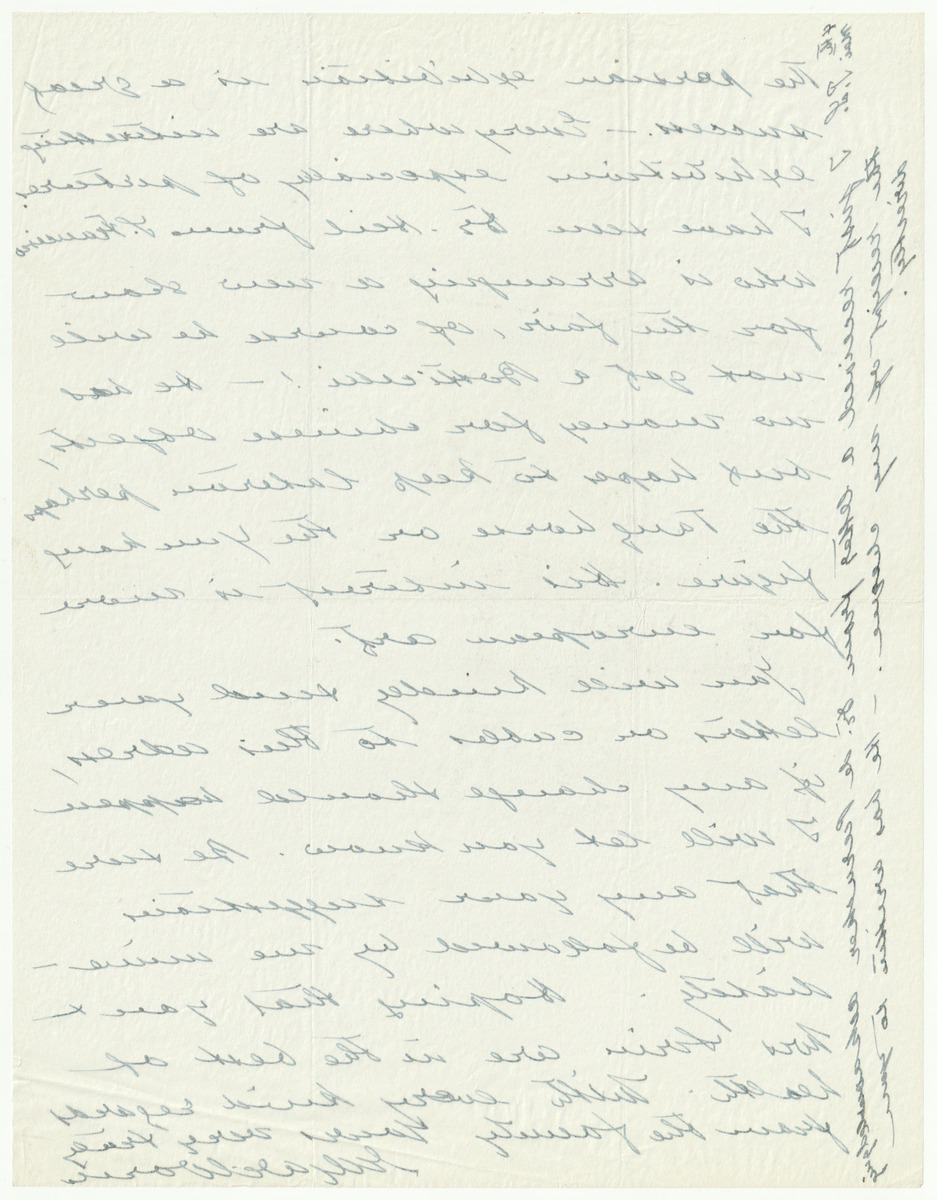 The persian exhibition is a great
success. – Every where are interesting
exhibitions especially of pictures
I have seen Dr. Heil from S. Francisco
who is arranging a new show
for the fair, of course he will
not get a Botticelli! – He has
no money for chinese objects,
but hopes to keep lateron perhaps
the Tang horse or the Yun kang
figure. His interest is more
for european art.
You will kindly send your
letters or cables to this adress,
if any change should happen
I will let you know. Be sure
that any your suggestions
will be folowed by me imme-
diately. Hoping that you &
Mrs Loria are in the best of
health. With every kind regards
from the family Yours very truly
I just received a letter from Dr. acknowledging
the receipt of my cheque. – He has written to your
wife.